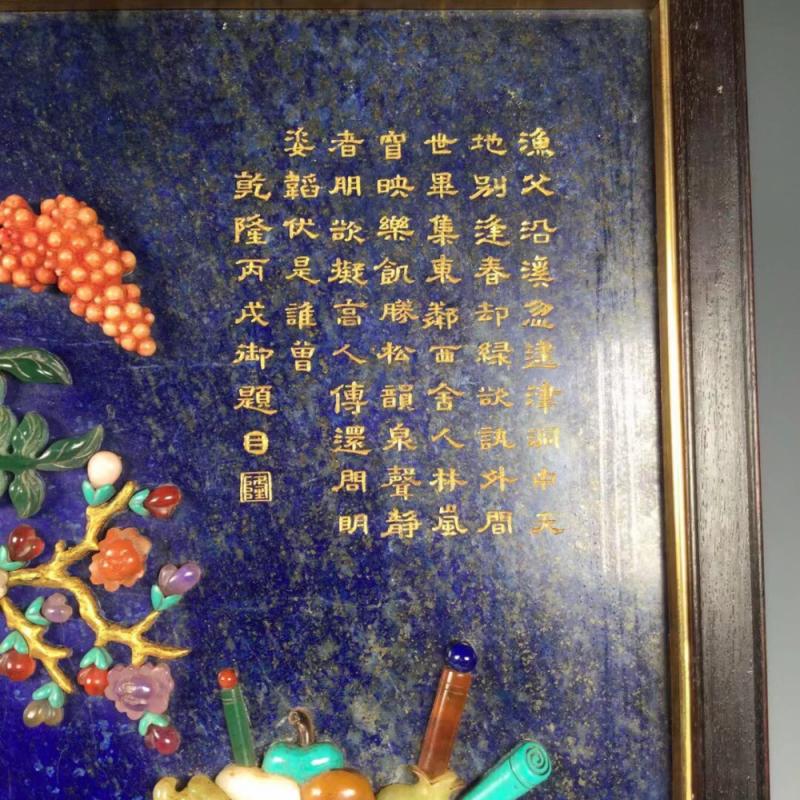 漁父沿溪忽逮津洞中天
地別逢春却緑欲訊外間
世畢集東鄰西舍人林嵐
窅映樂飢勝松韻泉聲靜
者朋欲擬高人傳還問明
姿韜伏是誰曾
乾隆丙戌御題